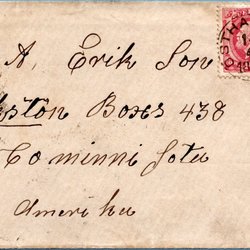 A, Erik Son
kston Boxes 438
Co minni Sota
Amerika
OSTHA